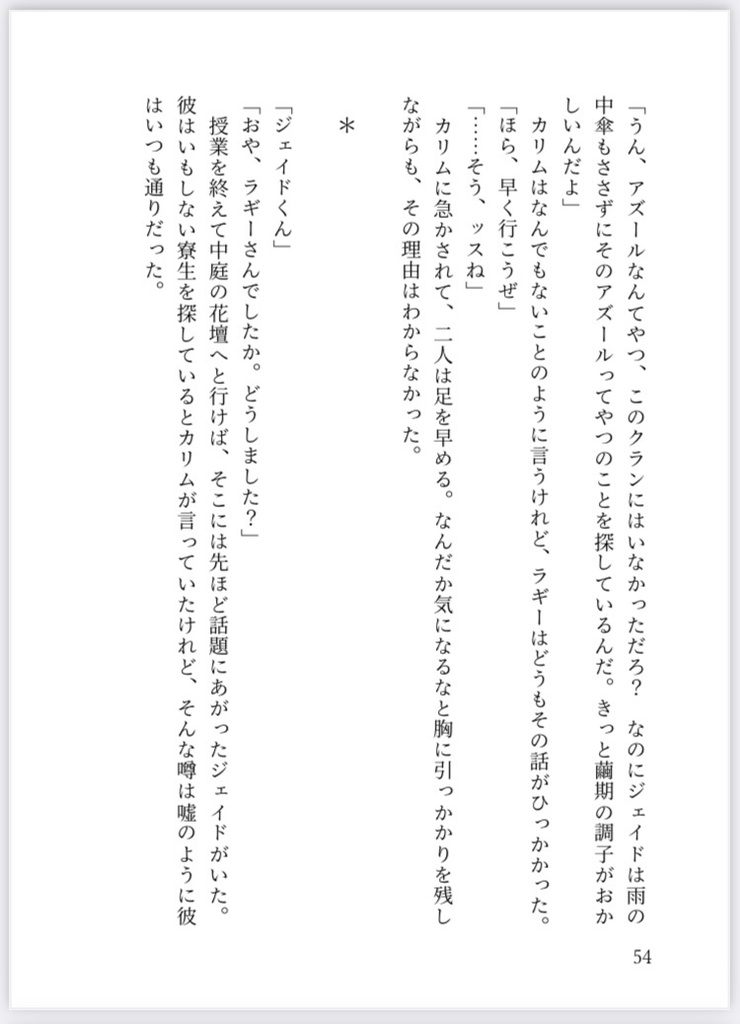 「うん、アズールなんてやつ、このクランにはいなかっただろ？　なのにジェイドは雨の
中傘もささずにそのアズールってやつのことを探しているんだ。きっと繭期の調子がおか
しいんだよ」
　カリムはなんでもないことのように言うけれど、ラギーはどうもその話がひっかかった。
「ほら、早く行こうぜ」
「……そう、ッスね」
　カリムに急かされて、二人は足を早める。なんだか気になるなと胸に引っかかりを残し
ながらも、その理由はわからなかった。
＊
「ジェイドくん」
「おや、ラギーさんでしたか。どうしました？」
　授業を終えて中庭の花壇へと行けば、そこには先ほど話題にあがったジェイドがいた。
彼はいもしない寮生を探しているとカリムが言っていたけれど、そんな噂は嘘のように彼
はいつも通りだった。
54